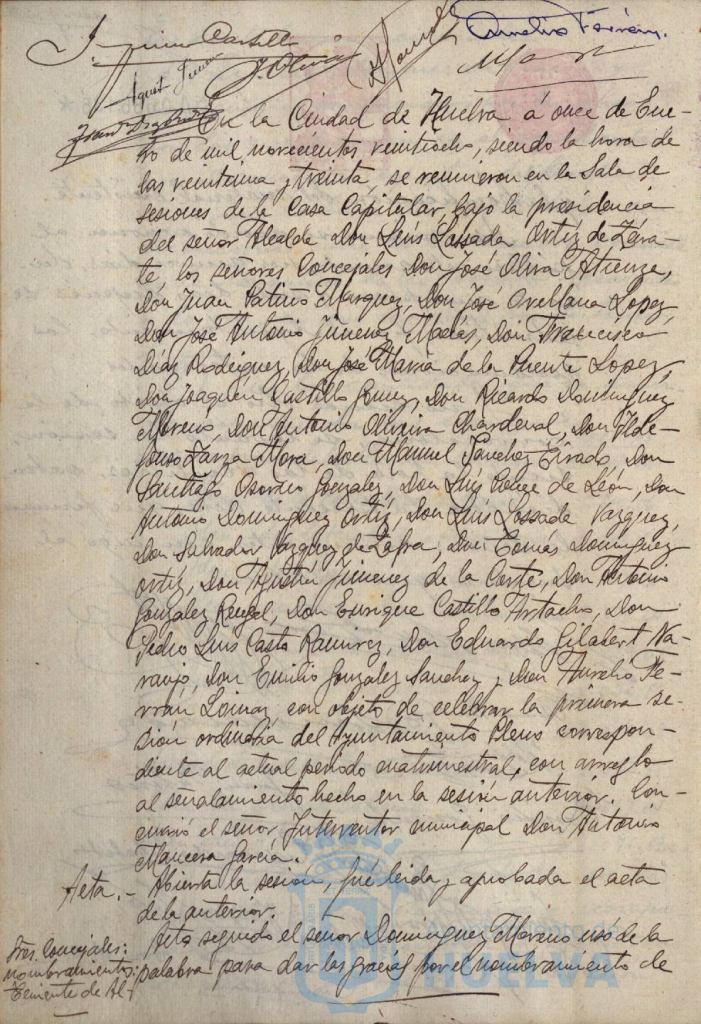 Joaquin Castillo
J. Oliva
A. Gonzalez
Aurelio Ferrán.
Agust Jimenez
Franco Diaz Rodriguez
En la Ciudad de Huelva á once de Ene-
ro de mil novecientos veintiocho, siendo la hora de
las veintiuna y treinta, se reunieron en la Sala de
sesiones de la Casa Capitular, bajo la presidencia
del señor Alcalde Don Luis Lossada Ortiz de Zára-
te, los señores Concejales Don José Oliva Atienza,
Don Juan Patiño Marquez, Don José Orellana Lopez,
Don José Antonio Jimenez Macías, Don Francisco
Díaz Rodriguez, Don José María de la Puente Lopez,
Don Joaquin Castillo Gomez, Don Ricardo Dominguez
Moreno, Don Antonio Oliveira Chardenal, Don Ilde-
fonso Zarza Mora, Don Manuel Sanchez Tirado, Don
Santiago Osorno Gonzalez, Don Luís Ponce de León, Don
Antonio Dominguez Ortiz, Don Luís Lossada Vazquez,
Don Salvador Vazquez de Zafra, Don Tomás Dominguez
Ortiz, Don Agustín Jimenez de la Corte, Don Antonio
Gonzalez Rengel, Don Enrique Castillo Artacho, Don
Pedro Luis Casto Ramirez, Don Eduardo Gilabert Na-
ranjo, Don Emilio Gonzalez Sanchez y Don Aurelio Fe-
rran con objeto de celebrar la primera se-
sión ordinaria del Ayuntamiento Pleno correspon-
diente al actual período cuatrimestral, con arreglo
al señalamiento hecho en la sesión anterior. Con-
currió el señor Interventor municipal Don Antonio
Mancera García.
Acta.- Abierta la sesion, fué leida y aprobada el acta
de la anterior.
Sres. Concejales:
nombramientos:
Teniente de Al-
Acto seguido el señor Dominguez Moreno usó de la
palabra para dar las gracias por el nombramiento de
HUELVA